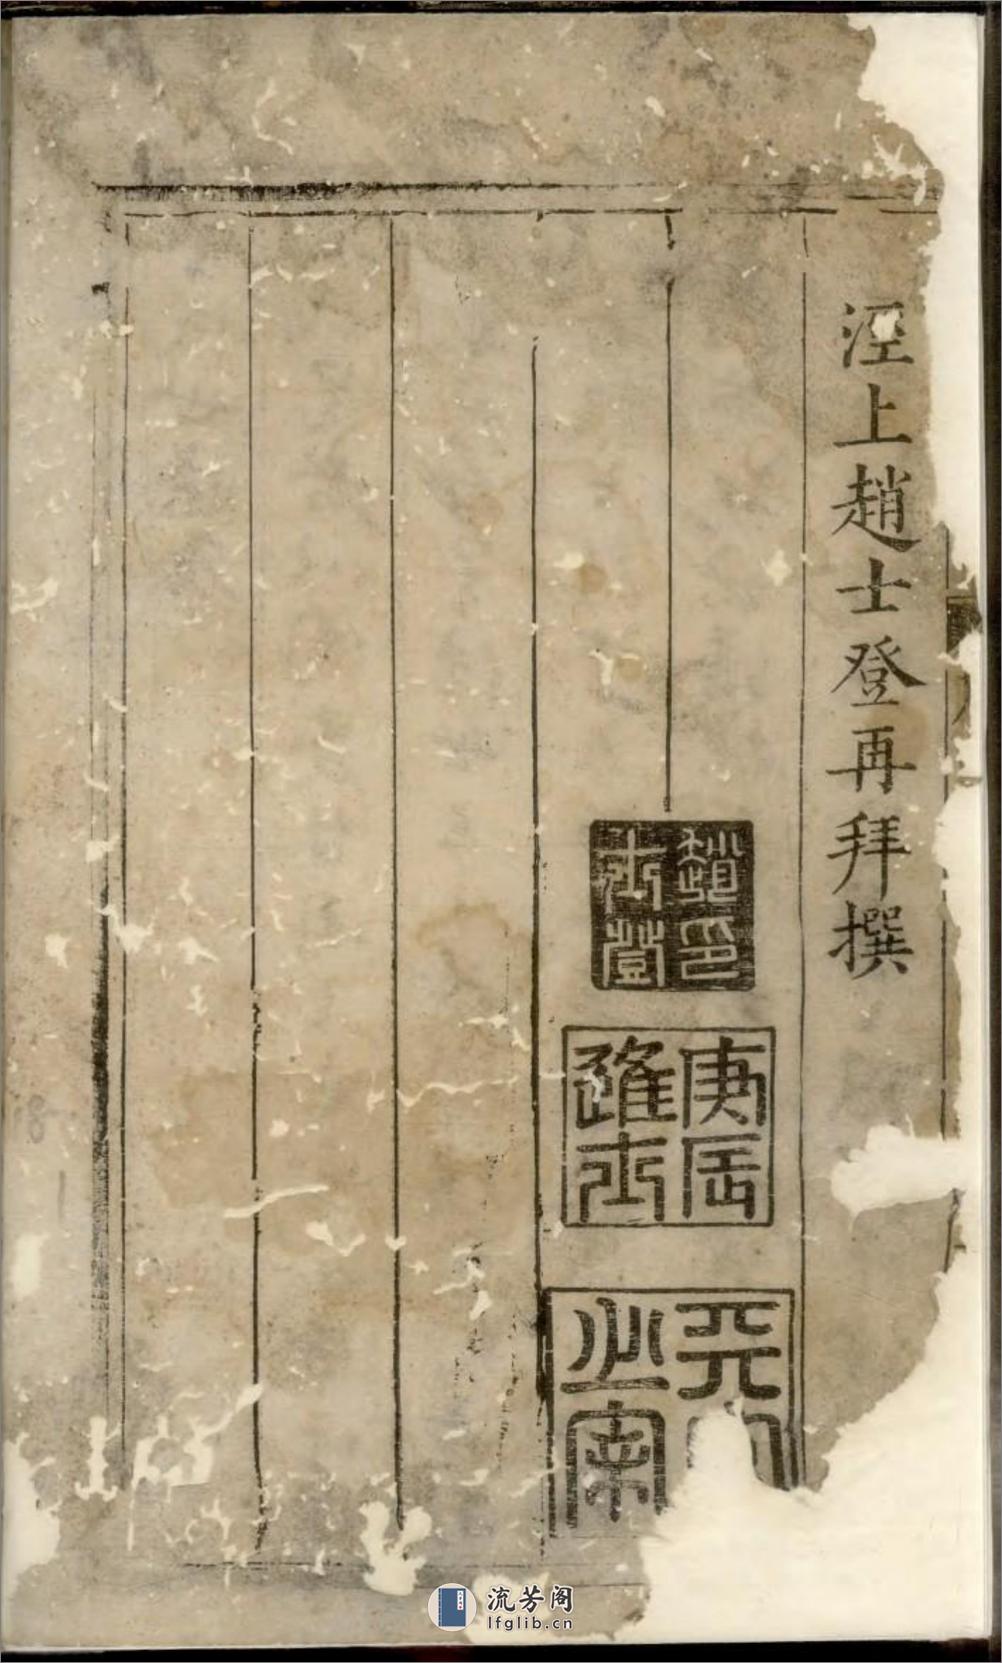 涇上趙士登再拜撰
趙印
士登
庚辰
進士
天
之
流芳阁
lfglib.cn